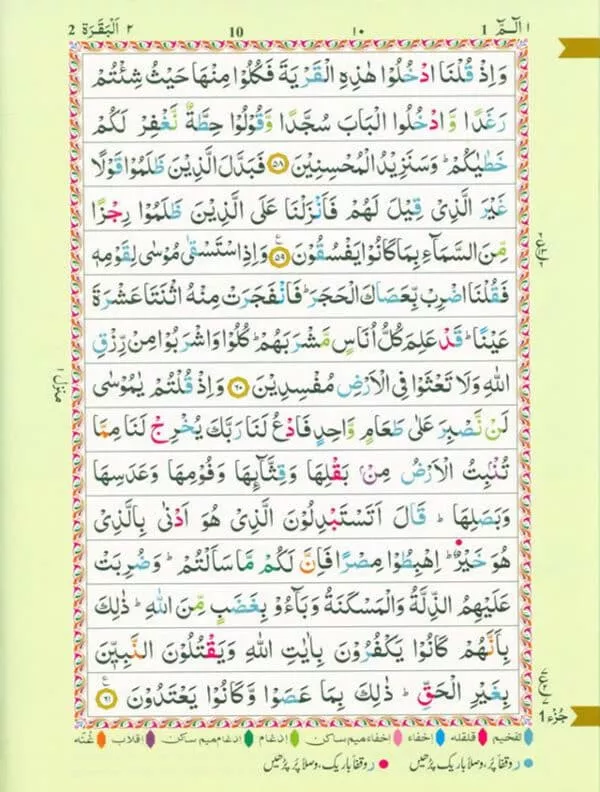 الٓمّٓ ١ 1 ١٠ 10 ٢ اَلْبَقَرَة 2
وَاِذْ قُلْنَا ادْخُلُوْا هٰذِهِ الْقَرْيَةَ فَكُلُوْا مِنْهَا حَيْثُ شِئْتُمْ
رَغَدًا وَّادْخُلُوا الْبَابَ سُجَّدًا وَّقُوْلُوْا حِطَّةٌ نَّغْفِرْ لَكُمْ
خَطٰيٰكُمْ ؕ وَسَنَزِيْدُ الْمُحْسِنِيْنَ ﴿۵۸﴾ فَبَدَّلَ الَّذِيْنَ ظَلَمُوْا قَوْلًا
غَيْرَ الَّذِيْ قِيْلَ لَهُمْ فَاَنْزَلْنَا عَلَى الَّذِيْنَ ظَلَمُوْا رِجْزًا
مِّنَ السَّمَآءِ بِمَا كَانُوْا يَفْسُقُوْنَ ﴿۵۹﴾ ع وَاِذِ اسْتَسْقٰى مُوْسٰى لِقَوْمِهٖ
فَقُلْنَا اضْرِبْ بِّعَصَاكَ الْحَجَرَ ؕ فَانْفَجَرَتْ مِنْهُ اثْنَتَا عَشْرَةَ
عَيْنًا ؕ قَدْ عَلِمَ كُلُّ اُنَاسٍ مَّشْرَبَهُمْ ؕ كُلُوْا وَاشْرَبُوْا مِنْ رِّزْقِ
اللّٰهِ وَلَا تَعْثَوْا فِي الْاَرْضِ مُفْسِدِيْنَ ﴿۶۰﴾ وَاِذْ قُلْتُمْ يٰمُوْسٰى
منزل ١
لَنْ نَّصْبِرَ عَلٰى طَعَامٍ وَّاحِدٍ فَادْعُ لَنَا رَبَّكَ يُخْرِجْ لَنَا مِمَّا
تُنْۢبِتُ الْاَرْضُ مِنْۢ بَقْلِهَا وَقِثَّآئِهَا وَفُوْمِهَا وَعَدَسِهَا
وَبَصَلِهَا ؕ قَالَ اَتَسْتَبْدِلُوْنَ الَّذِيْ هُوَ اَدْنٰى بِالَّذِيْ
هُوَ خَيْرٌ ؕ اِهْبِطُوْا مِصْرًا فَاِنَّ لَكُمْ مَّا سَاَلْتُمْ ؕ وَضُرِبَتْ
عَلَيْهِمُ الذِّلَّةُ وَالْمَسْكَنَةُ وَبَآءُوْ بِغَضَبٍ مِّنَ اللّٰهِ ؕ ذٰلِكَ
بِاَنَّهُمْ كَانُوْا يَكْفُرُوْنَ بِاٰيٰتِ اللّٰهِ وَيَقْتُلُوْنَ النَّبِيّٖنَ
بِغَيْرِ الْحَقِّ ؕ ذٰلِكَ بِمَا عَصَوْا وَّكَانُوْا يَعْتَدُوْنَ ﴿۶۱﴾ ع
جُزْء 1
تفخیم قلقله إخفاء إخفاء میم ساکن إدغام إدغام میم ساکن إقلاب غُنّه
ر وقفاً پُر، وصلاً باریک پڑھیں ر وقفاً باریک، وصلاً پُر پڑھیں